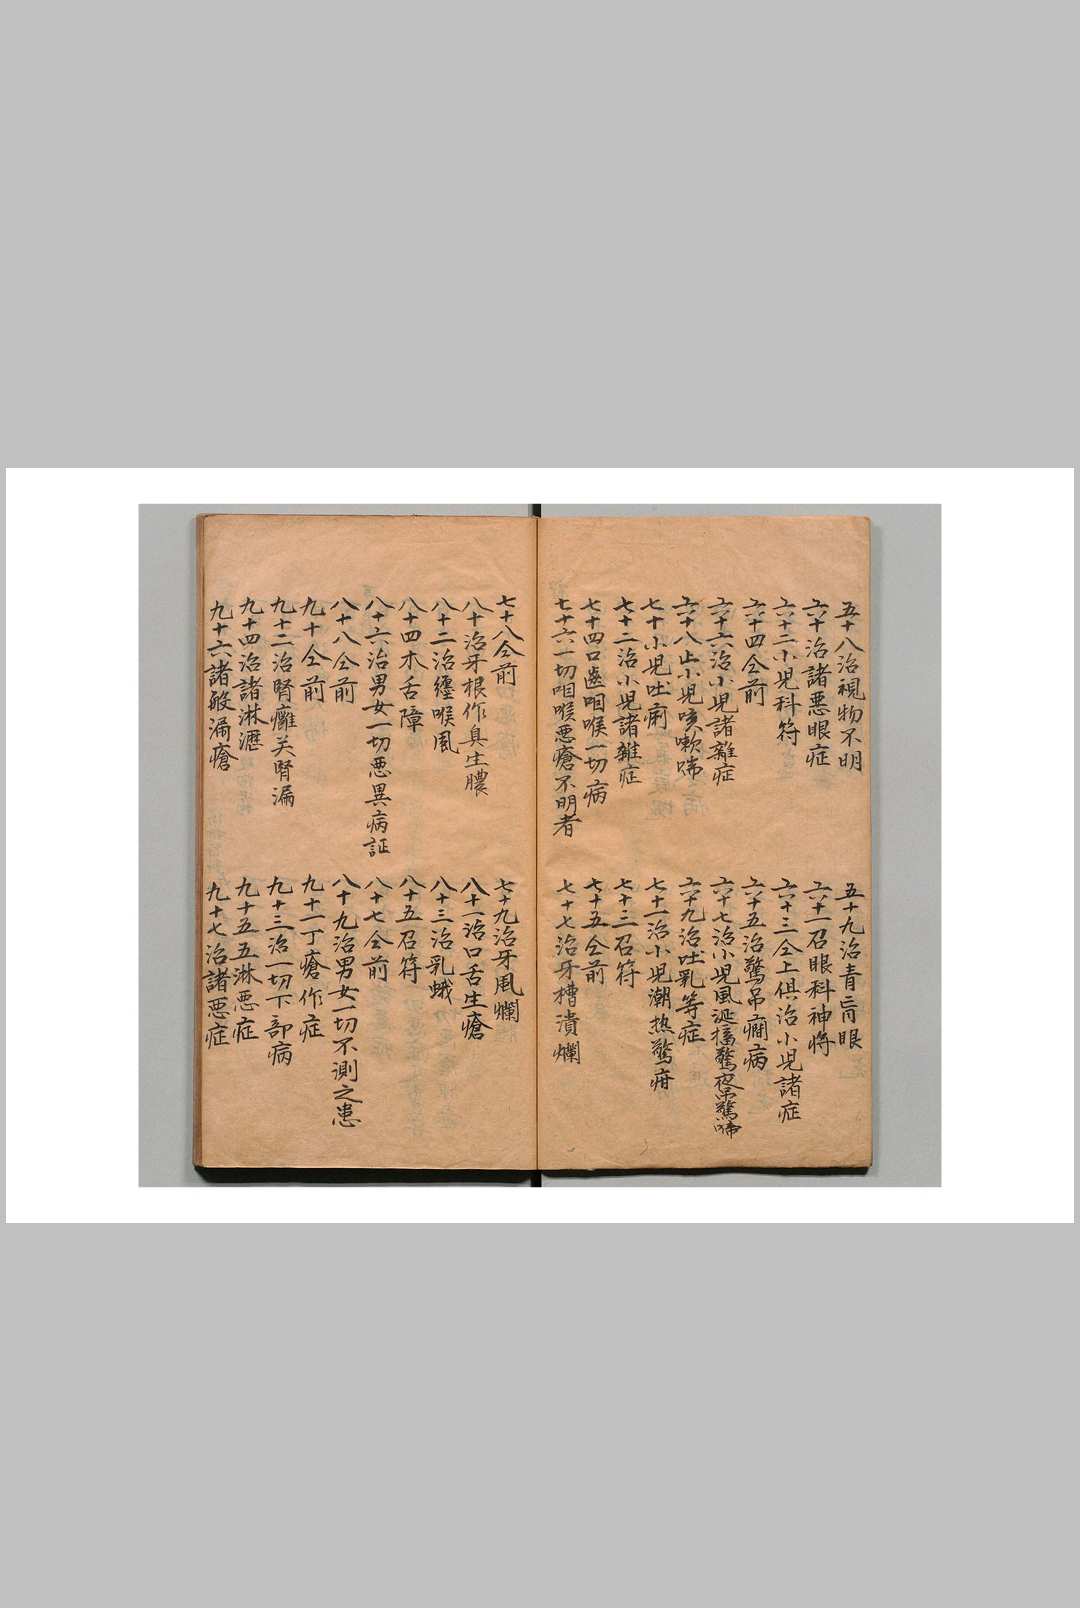 五十八治視物不明
五十九治青盲眼
六十治諸悪眼症
六十一召眼科神将
六十二小児科符
六十三仝上俱治小児諸症
六十四仝前
六十五治驚吊癇病
六十六治小児諸雜症
六十七治小児風涎搐驚夜吊驚啼
六十八止小児咳嗽喘
六十九治吐乳等症
七十小児吐痢
七十一治小児潮热驚疳
七十二治小児諸雜症
七十三召符
七十四口齒咽喉一切病
七十五仝前
七十六一切咽喉悪瘡不明者
七十七治牙槽潰爛
七十八仝前
七十九治牙風爛
八十治牙根作臭生膿
八十一治口舌生瘡
八十二治纏喉風
八十三治乳蛾
八十四木舌障
八十五召符
八十六治男女一切悪異病証
八十七仝前
八十八仝前
八十九治男女一切不測之患
九十仝前
九十一丁瘡作症
九十二治腎癰关腎漏
九十三治一切下部病
九十四治諸淋瀝
九十五五淋悪症
九十六諸般漏瘡
九十七治諸悪症